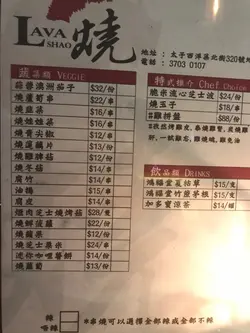 LAVA
SHAO
燒
地址：太子西洋菜北街320號地
電話：3703 0107
蔬菜類 VEGGIE
蒜蓉澳洲茄子 $32/份
燒蘆筍串 $22/串
燒韮菜 $14/串
燒娃娃菜 $16/串
燒青尖椒 $12/串
燒蓮藕片 $13/串
燒雞脾菇 $14/串
燒茄子 $14/串
腐竹 $14/串
油揚 $15/串
腐皮 $14/串
煙肉芝士燒烤菇 $28/隻
燒鮮菠蘿 $15/串
燒粟米 $14/份
燒芝士粟米 $20/份
迷你咖喱薯餅 $14/份
燒蘿蔔 $13/份
特式推介 Chef Choice
脆米通心芝士波 $24/份
燒玉子 $18/串
#雞拼盤 $88/份
飲品類 DRINKS
鴻福堂夏枯草 $15/支
鴻福堂竹蔗茅根 $15/支
加多寶涼茶 $14/罐
辣
唔辣
*串燒可以選擇全部辣或全部不辣